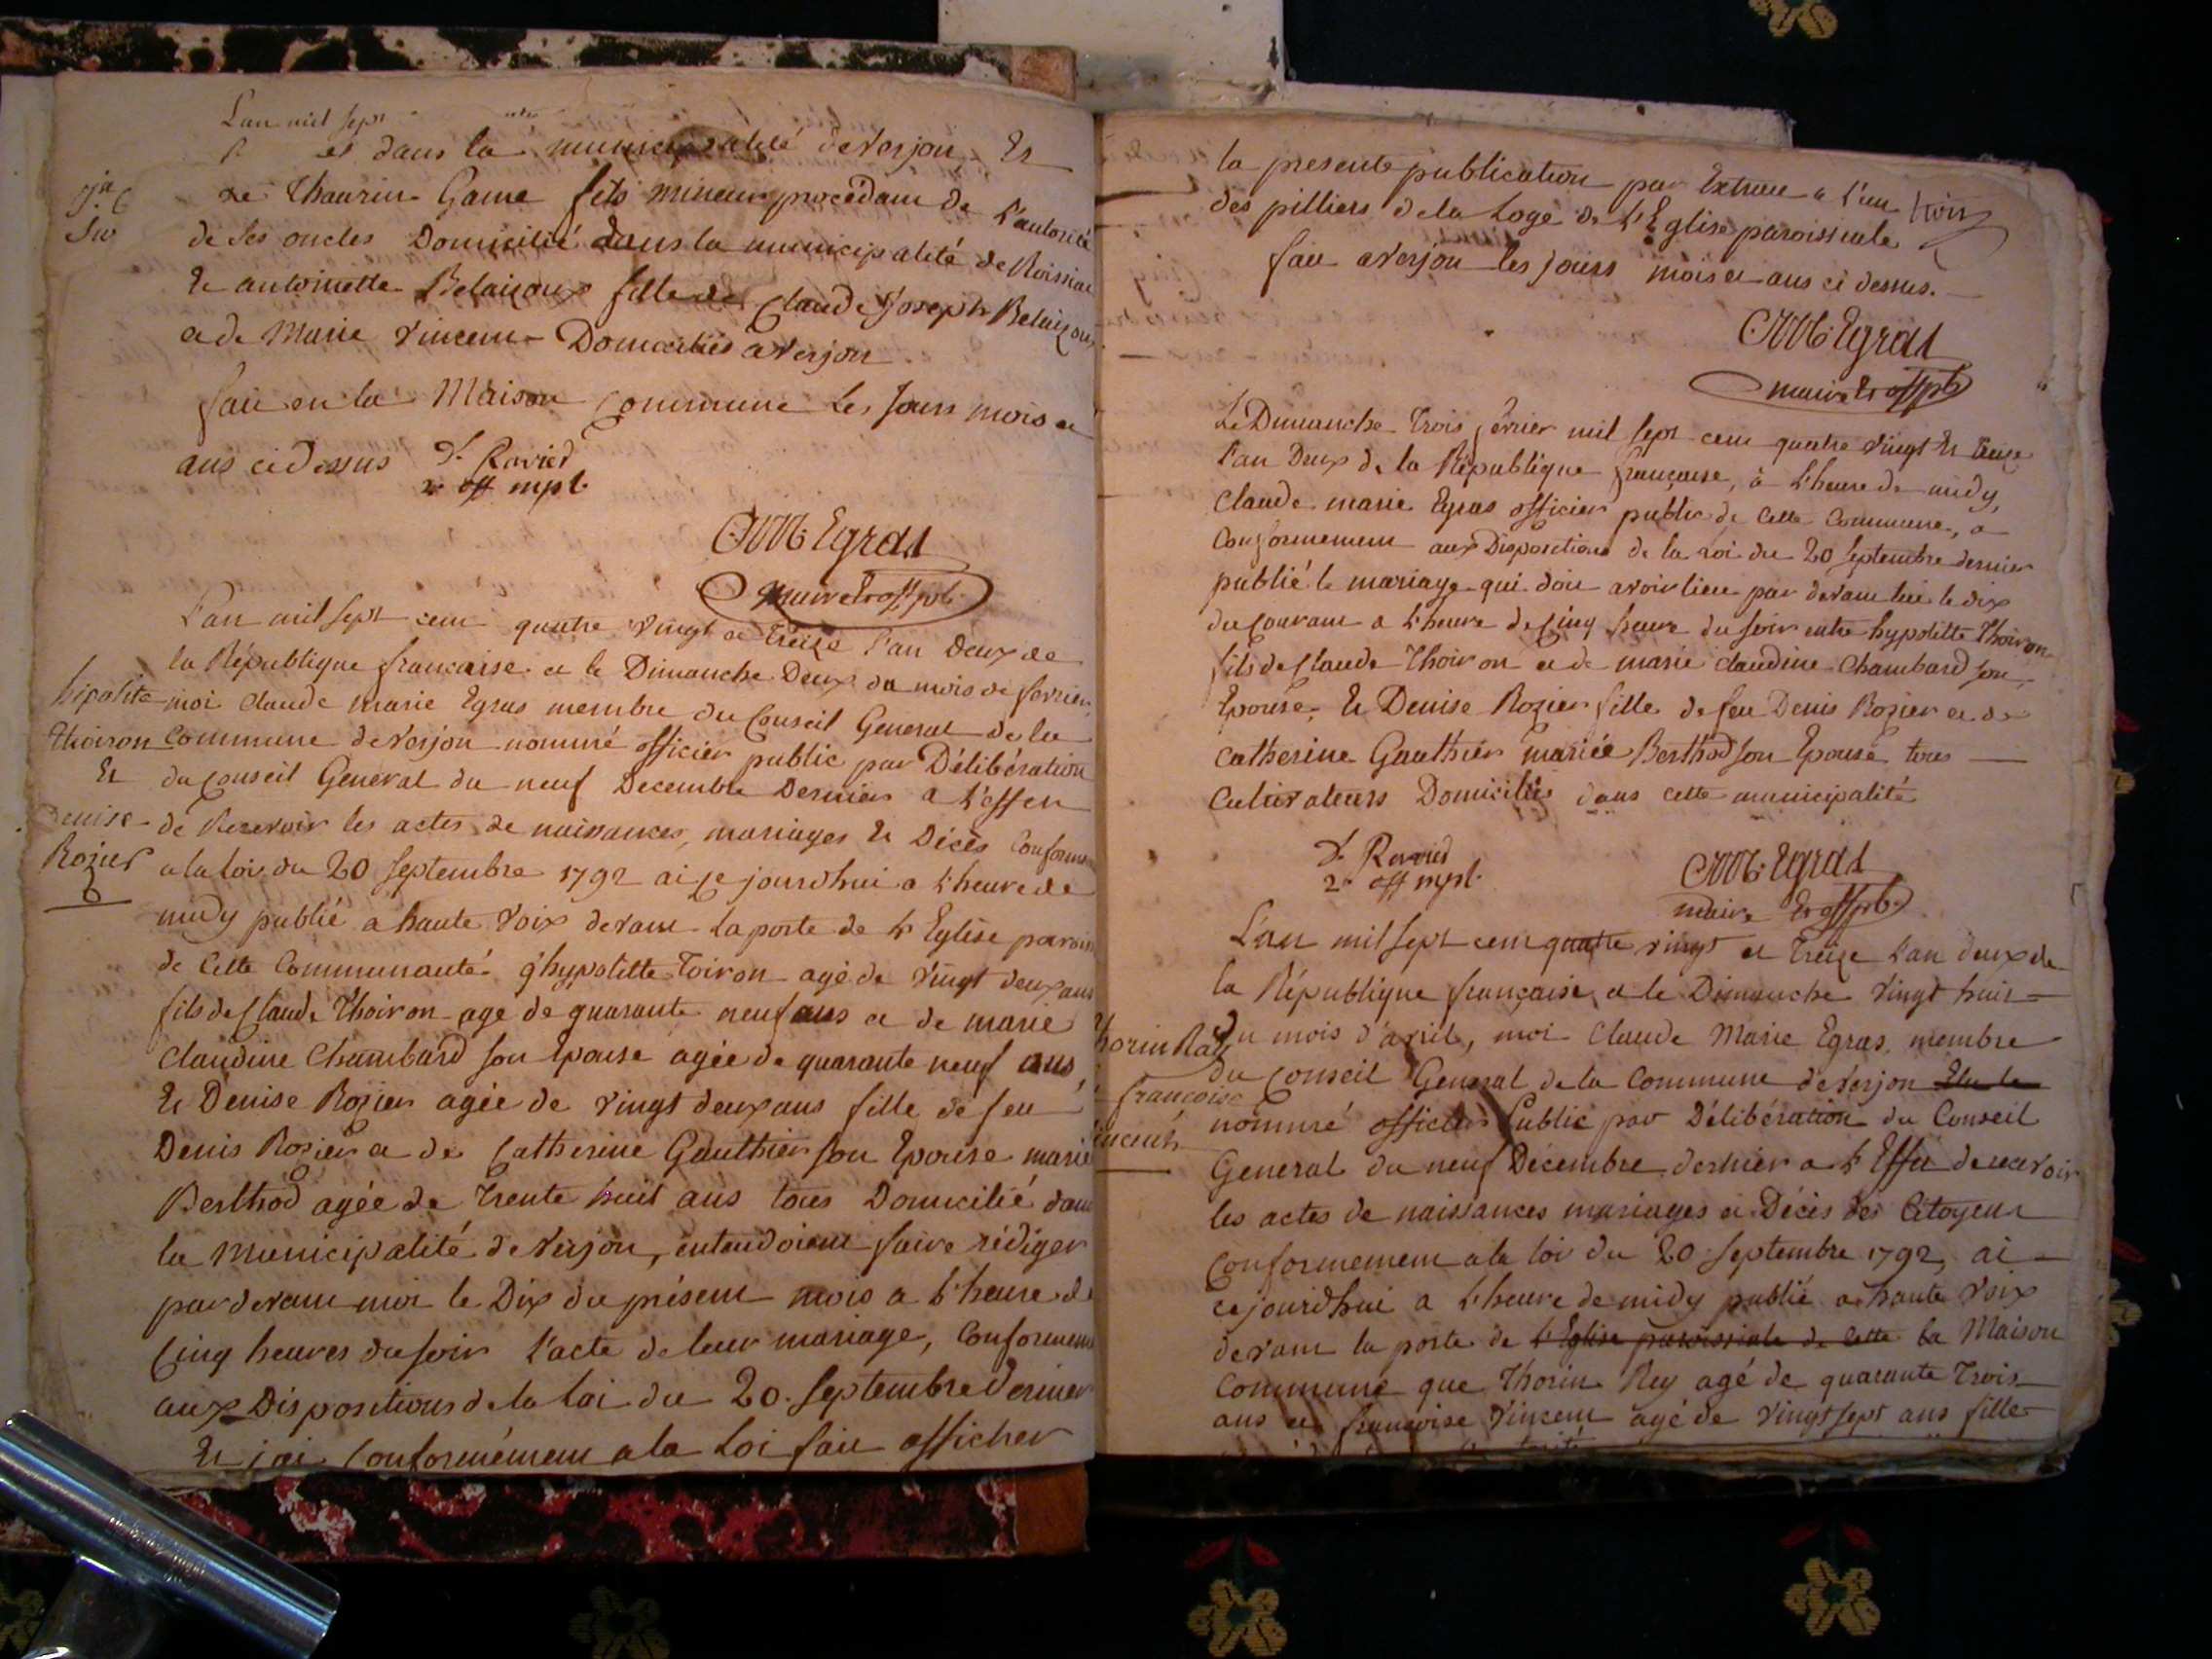 L'an mil sept
et dans la municipalité de Verjon, Et
de Thaurin Game fils mineur procédant de L'autorité
de Ses oncles Domicilié dans la municipalité de Roissiat
Et antoinette Belaizoux fille de Claude Joseph Belaizoux
et de Marie Vincent Domiciliés a Verjon
fait en la Maison Commune Les Jours mois et
ans ci dessus
D. Ravied
2e off mpl.
CMB. Egras
maire et off pb.
L'an mil sept cent quatre vingt et Treize L'an Deux de
la République française et le Dimanche Deux du mois de fevrier,
moi Claude marie Egras membre du Conseil General de la
Commune de Verjon nommé officier public par Délibération
du Conseil General du neuf Decembre Dernier a L'effet
de Recevoir les actes de naissances, mariages Et Décès Conforme
a la loi du 20 Septembre 1792 ai ce jourdhui a L'heure de
midy publié a haute Voix devant la porte de L'Eglise paroiss
de Cette Communauté q'hypolitte Toiron agé de Vingt deux ans
fils de Claude Thoiron age de quarante neuf ans et de marie
Claudine Chambard son Epouse agée de quarante neuf ans,
Et Denise Rozier agée de Vingt deux ans fille de feu
Denis Rozier et de Catherine Gauthier son Epouse marié
Berthod agée de Trente huit ans tous Domicilié dans
la Municipalité de Verjon, entendoient faire rédiger
par devant moi le Dix du présent mois a L'heure de
Cinq heures du soir L'acte de leur mariage, Conformement
aux Dispositions de la loi du 20. Septembre Dernier
Et j'ai Conformément a la Loi fait afficher
hipolite
Thoiron
Et
Denise
Rozier
la presente publication par Extrait a l'un
des pilliers de la Loge de L'Eglise paroissiale
fait a Verjon les jours mois et ans ci dessus.
CMB. Egras
maire Et off pb
Le Dimanche Trois fevrier mil sept cent quatre Vingt Et Treize
L'an Deux de la République française, à L'heure de midy,
Claude marie Egras officier public de Cette Commune, a
Conformement aux Dispositions de la Loi du 20 Septembre dernier
publié le mariage qui doit avoir lieu par devant lui le dix
du Courant a L'heure de Cinq heure du soir entre hypolitte Thoiron
fils de Claude Thoiron et de marie Claudine Chambard son
Epouse, Et Denise Rozier fille de feu Denis Rozier et de
Catherine Gauthier mariée Berthod son Epouse tous
Cultivateurs Domiciliés dans cette municipalité
D. Ravied
2e off mpl.
CMB. Egras
maire Et off pb.
L'an mil sept cent quatre vingt et Treize L'an deux de
la République française, et le Dimanche Vingt huit
du mois d'avril, moi Claude Marie Egras, membre
du Conseil General de la Commune de Verjon
nommé officier Public par Délibération du Conseil
General du neuf Décembre dernier a L'Effet de recevoir
les actes de naissances mariages et Décès des Citoyens
Conformement a la loi du 20 Septembre 1792, ai
cejourdhui a L'heure de midy publié a haute Voix
devant la porte de L'Eglise paroissiale de Cette la Maison
Commune que Thorin Rey agé de quarante Trois
ans et françoise Vincent agé de Vingt sept ans fille
françoise